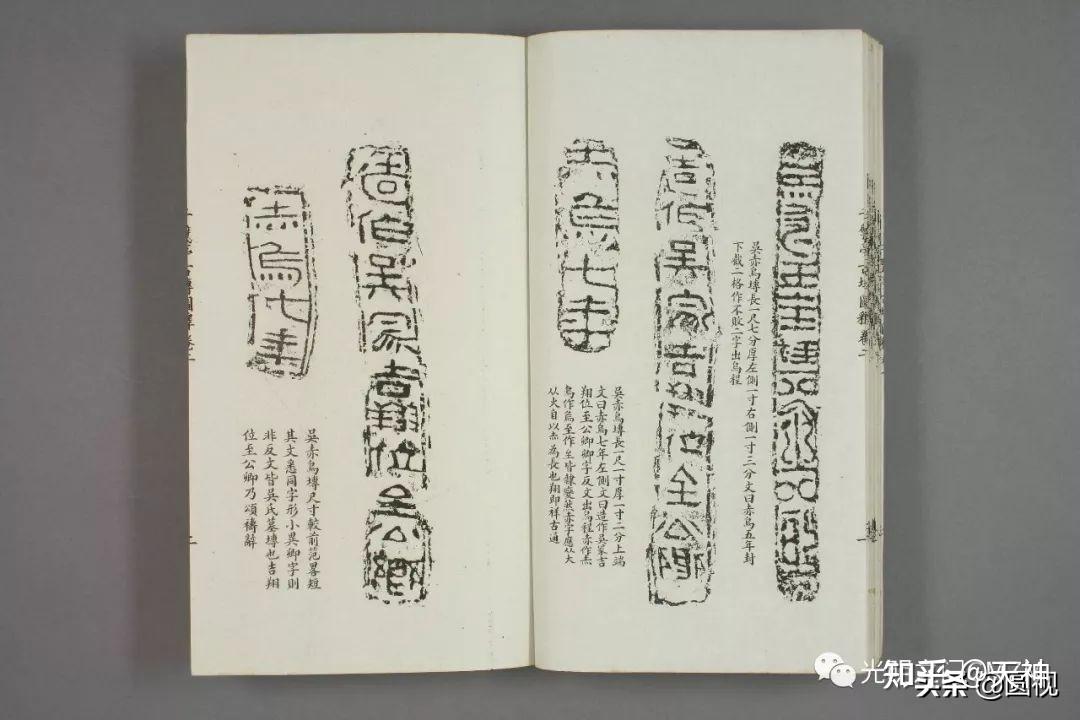 吳赤烏塼長一尺七分厚左側一寸右側一寸三分文曰赤烏五年封
下截二格作不敗二字出烏程
造作吳家吉翔位至公卿
赤烏七年
吳赤烏塼長一尺一寸厚一寸二分上端
文曰赤烏七年左側文曰造作吳家吉
翔位至公卿卿字反文出烏程赤作灻
烏作烏至作𦤳皆隸變然赤字應从大
从火自以灻為長也翔即祥古通
造作吳家吉翔位至公卿
赤烏七年
吳赤烏塼尺寸較前范畧短
其文悉同字形小異卿字則
非反文皆吳氏墓塼也吉翔
位至公卿乃頌禱辭
知乎 @天神
头条 @圆视